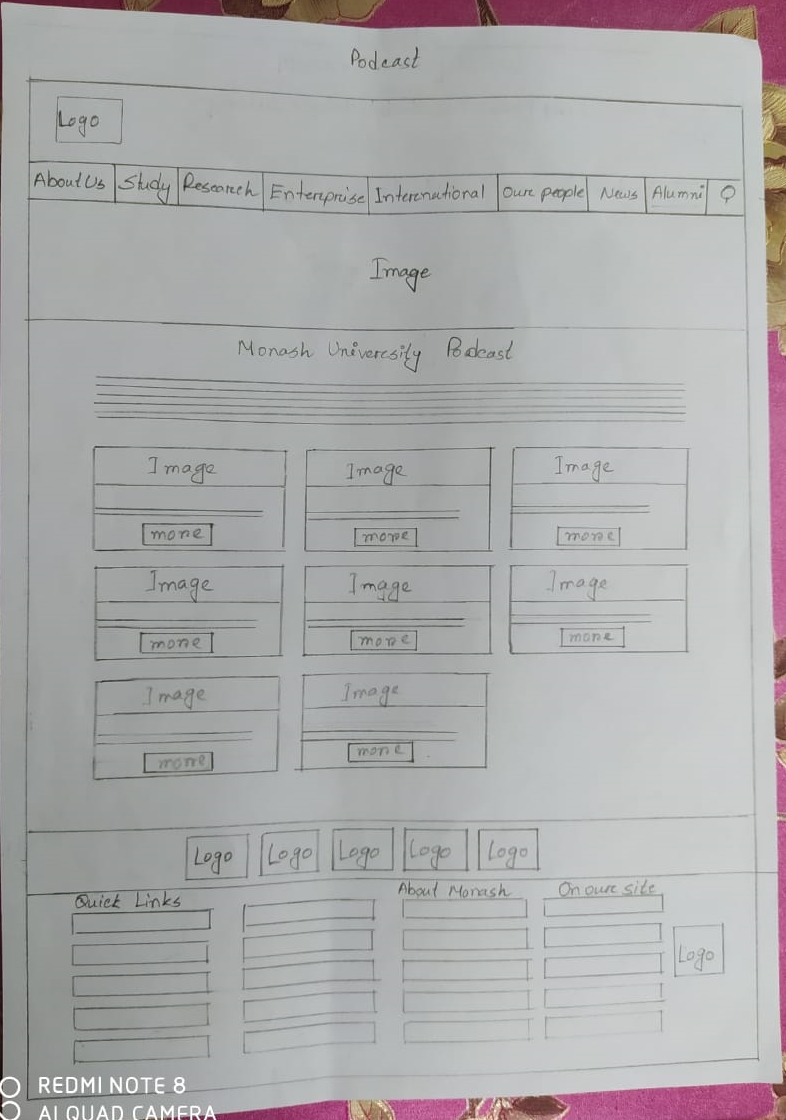 Podcast
Logo
About Us Study Research Enterprise International Our people News Alumni
Image
Monash University Podcast
Image Image Image
more more more
Image Image Image
more more more
Image Image
more more
Logo Logo Logo Logo Logo
Quick Links About Monash On our site
Logo
REDMI NOTE 8
AI QUAD CAMERA